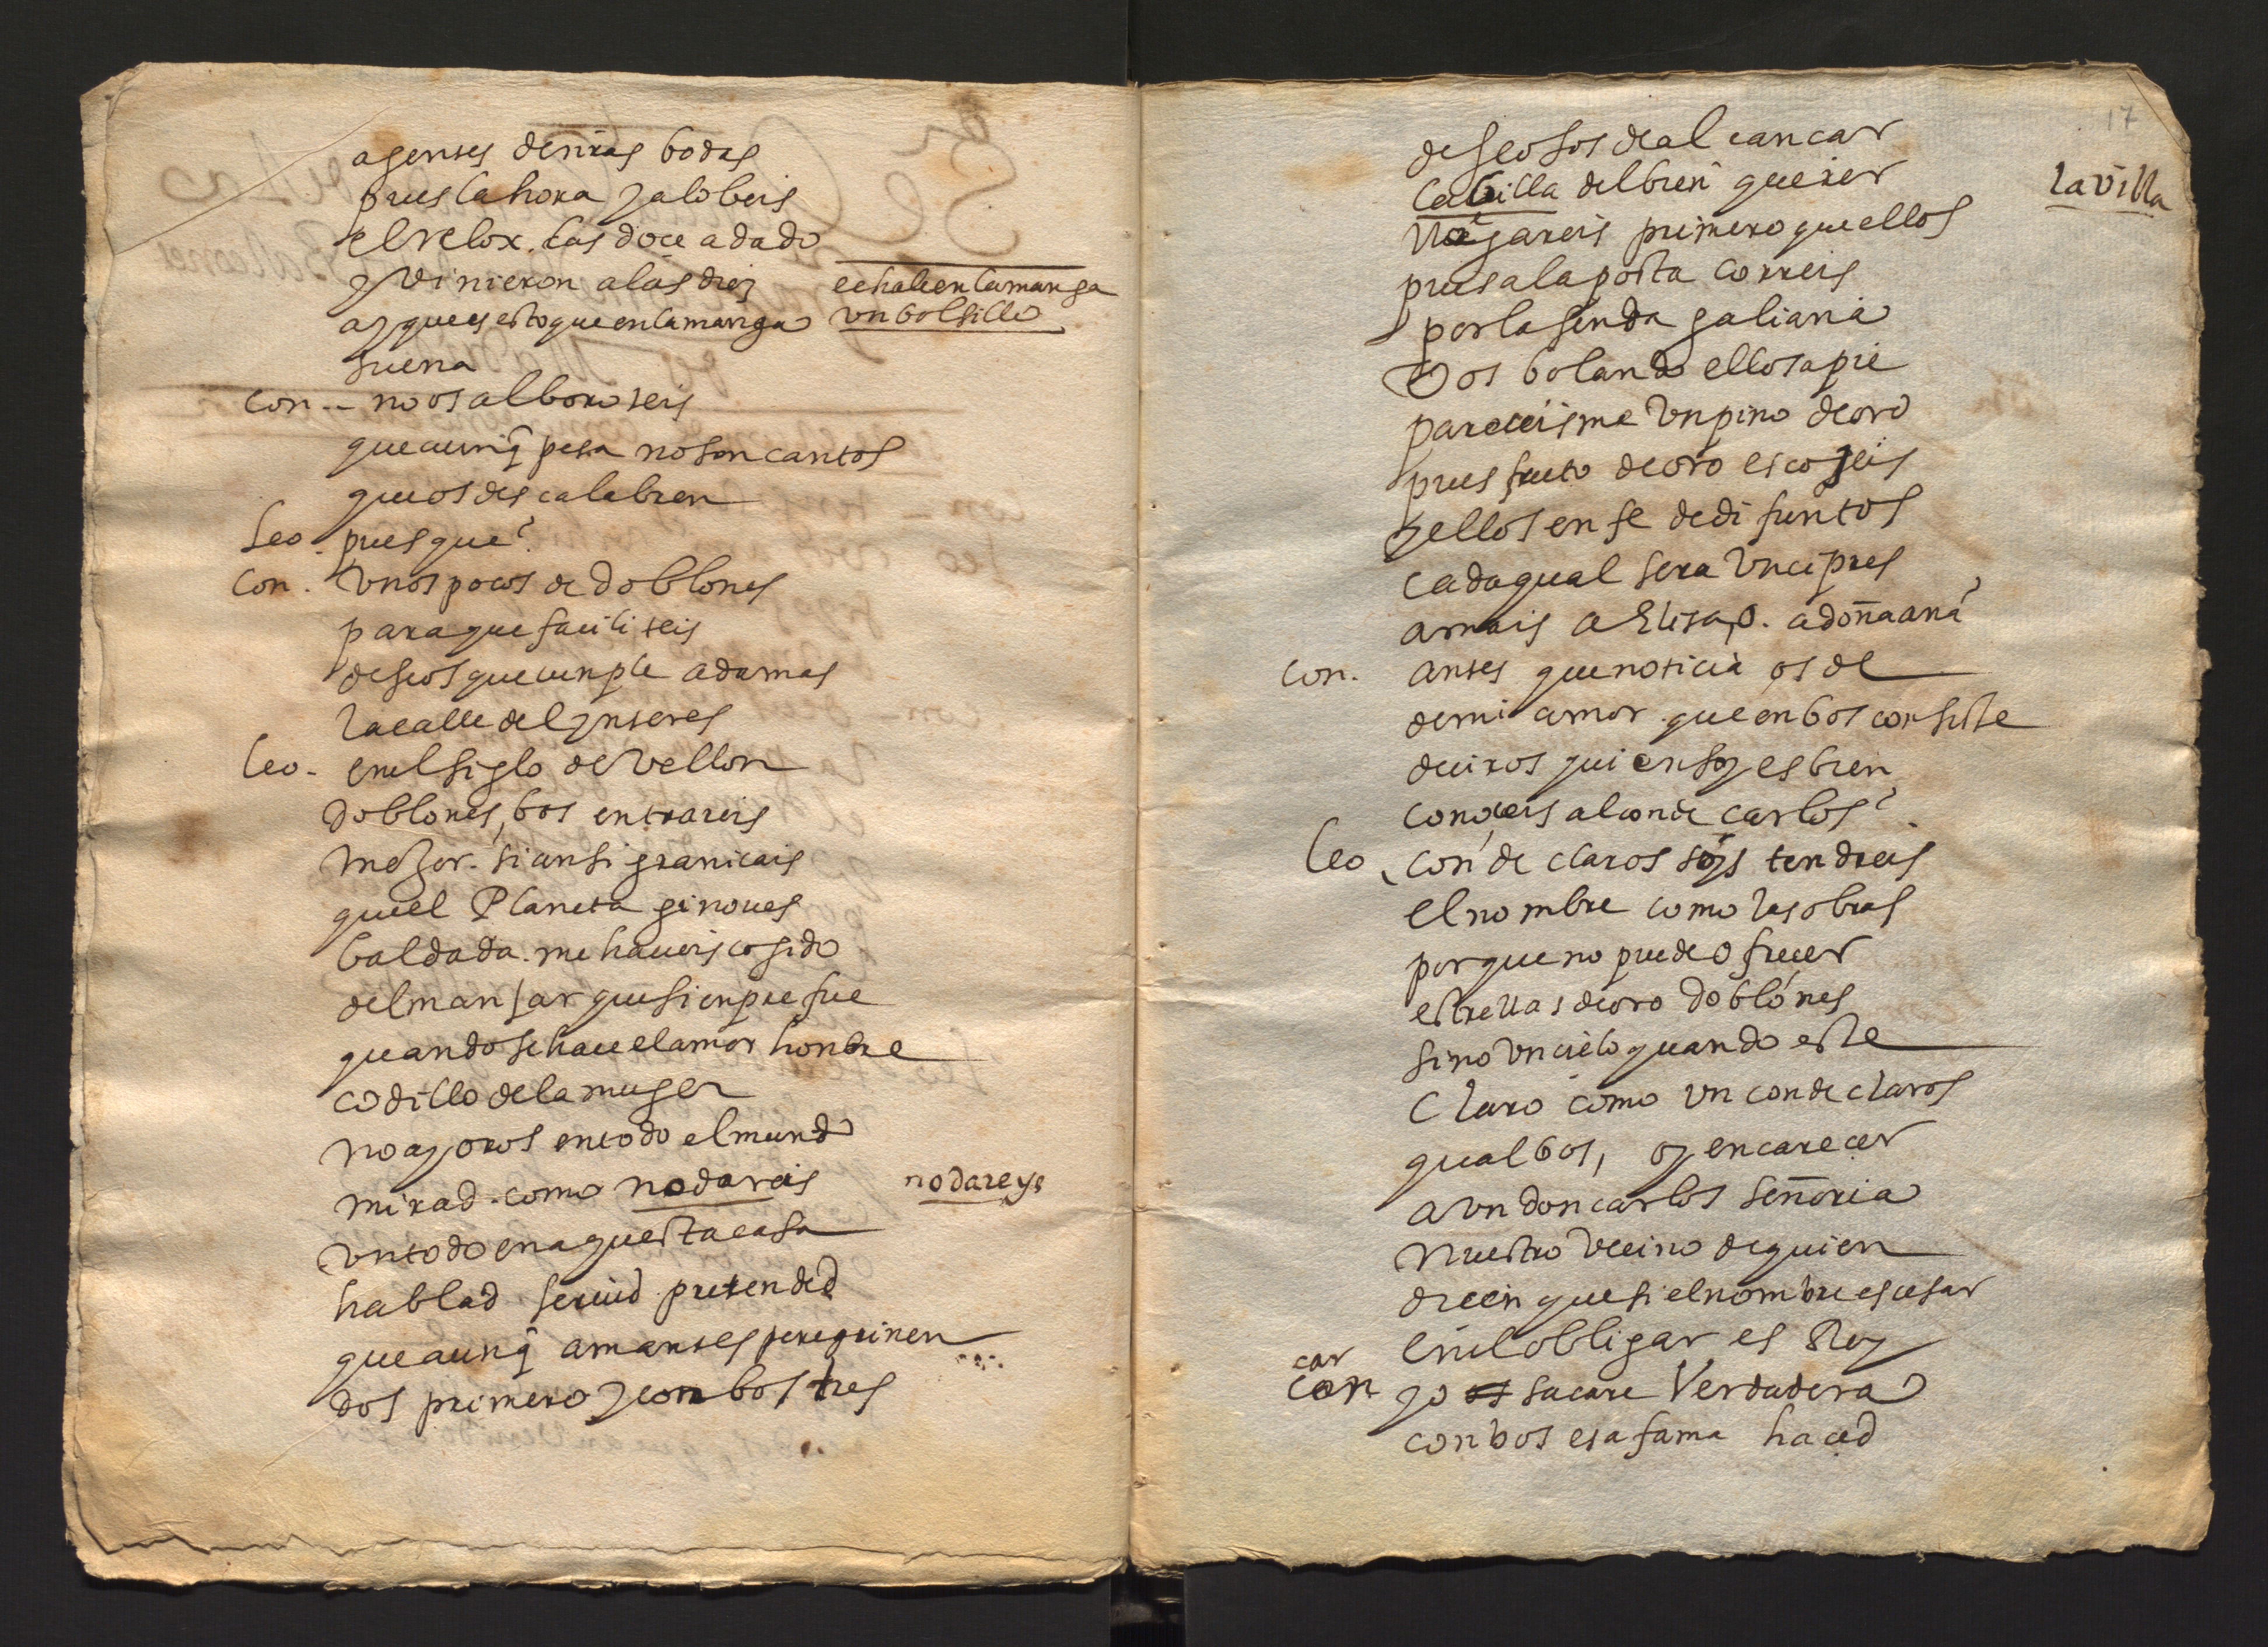 agentes de nr̃as bodas
pues la hora ya lo beis
el relox las doce a dado
y vinieron a las diez
echale en la manga
un bolsillo
ay que es esto que en la manga
suena
con - no os alboroteis
que aunq̃ pesa no son cantos
que os descalabren
Leo. pues que?
con. unos pocos de doblones
para que faciliteis
deseos que cunple a damas
la calle del ynteres
leo. en el siglo de vellon
doblones, bos entrareis
mejor. si ansi granicais
que el Planeta ginoves
baldada me haveis cogido
del manjar que sienpre fue
quando se hace el amor honbre
codillo de la muger
no ay oros en todo el mundo
mirad como no dareis
no dareys
un todo en aquesta casa
hablad servid pretended
que aunq̃ amantes peregrinen
dos primero y con bos tres
17
deseosos de alcancar
la billa del bien querer
la villa
llegareis primero que ellos
pues a la posta correis
por la senda galiana
Vos bolando ellos a pie
pareceisme un pino de oro
pues fruto de oro escojeis
y ellos en fe de difuntos
cada qual sera un cipres
amais a Elisa, o. a doña ana?
con. antes que noticia os de
de mi amor que en bos consiste
deciros quien soy es bien
conoceis al conde carlos?
leo. con de claros soys tendreis
el nombre como las obras
porque no puede ofrecer
estrellas de oro doblones
sino un cielo quando este
claro como un conde claros
qual bos, oy encarecer
a un don carlos señoria
nuestro vecino de quien
dicen que si el nombre es cesar
en el obligar es Rey
car
con yo sacare Verdadera
con bos esa fama haced